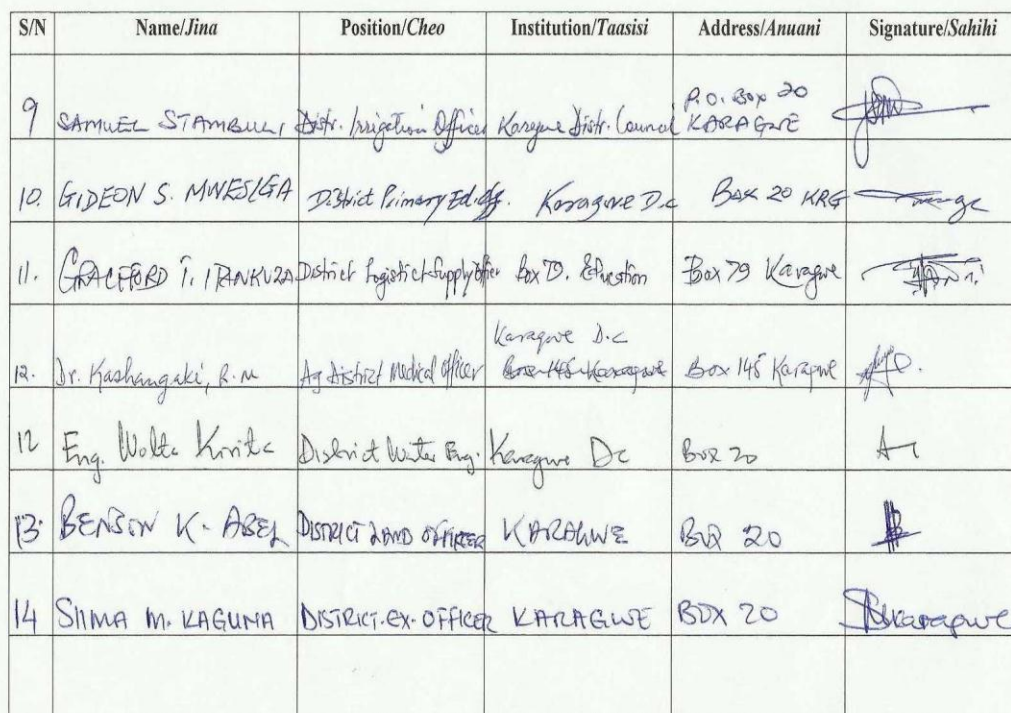 S/N Name/Jina Position/Cheo Institution/Taasisi Address/Anuani Signature/Sahihi
9 SAMUEL STAMBULI Distr. Irrigation Officer Karagwe Distr. Council P.O. Box 20 KARAGWE
10. GIDEON S. MWESIGA District Primary Ed. Off. Karagwe D.c Box 20 KRG
11. GRACEFORD I. District Logistict Supply Officer Box 79. Education Box 79 Karagwe
12. Dr. Kashangaki, R.M Ag District Medical Officer Karagwe D.c Box 145 Karagwe Box 145 Karagwe
12 Eng. Kirita District Water Eng. Karagwe Dc Box 20
13. BENSON K. ABEL DISTRICT LAND OFFICER KARAGWE BOX 20
14 SIIMA M. KAGUNA DISTRICT. EX. OFFICER KARAGWE BOX 20